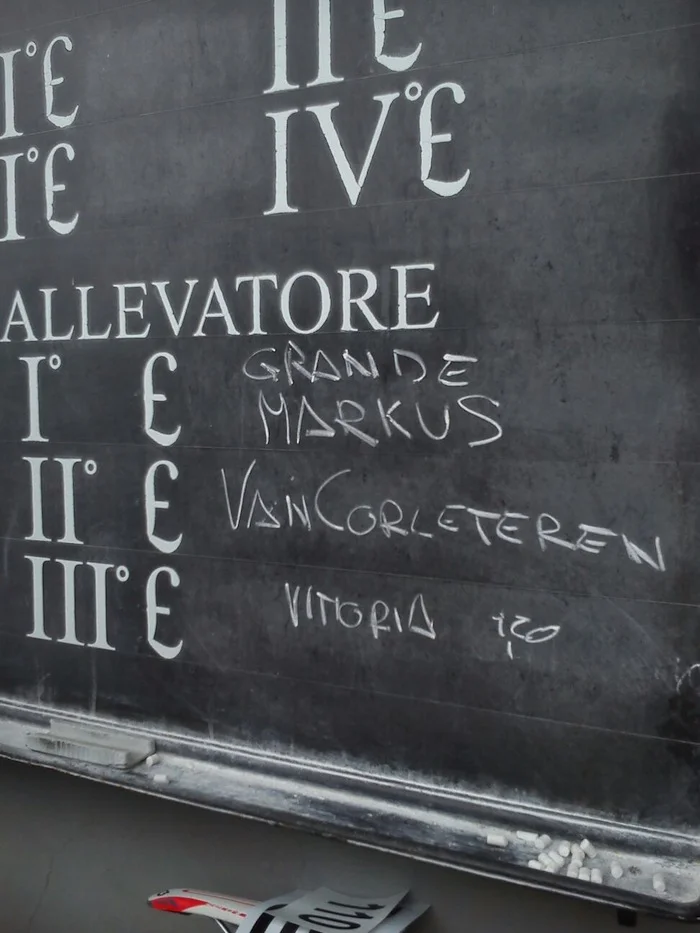 II £
I° £
IV° £
I° £
ALLEVATORE
I° £ GRANDE
MARKUS
II° £ VANCORLETEREN
III° £ VITORIA